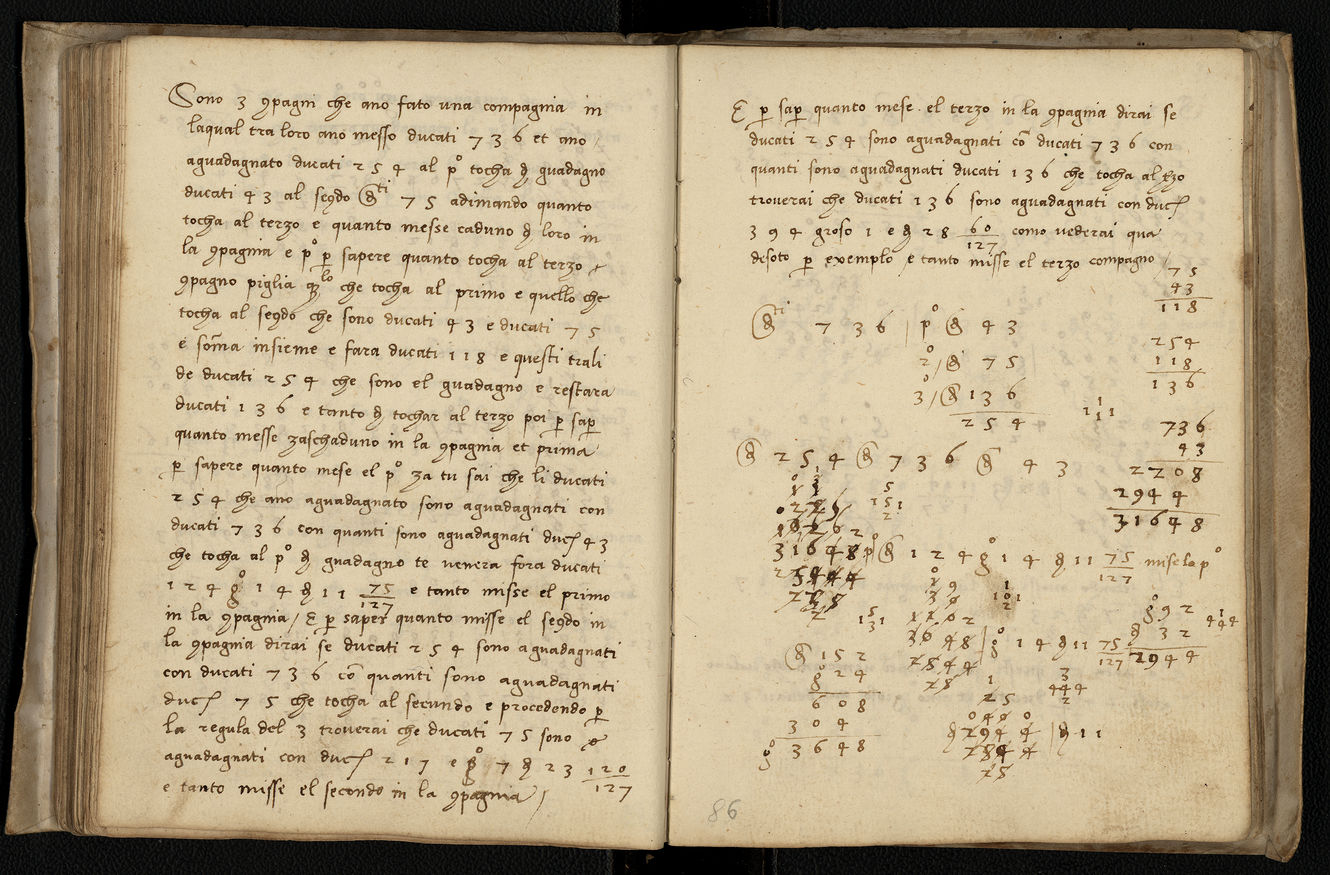 Sono 3 9pagni che ano fato una compagnia in
laqual tra loro ano messo ducati 7 3 6 et ano
aguadagnato ducati 2 5 4 al p° tocha d guadagno
ducati 4 3 al se9do d ti 7 5 adimando quanto
tocha al terzo e quanto messe caduno d loro in
la 9pagnia e p° p sapere quanto tocha al terzo
9pagno piglia che tocha al primo e quello che
tocha al se9do che sono ducati 4 3 e ducati 7 5
e soma insieme e fara ducati 1 1 8 e questi trali
de ducati 2 5 4 che sono el guadagno e restara
ducati 1 3 6 e tanto d tochar al terzo poi p sap
quanto messe zaschaduno in la 9pagnia et prima
p sapere quanto mese el p° za tu sai che li ducati
2 5 4 che ano aguadagnato sono aguadagnati con
ducati 7 3 6 con quanti sono aguadagnati duc 4 3
che tocha al p° d guadagno te venera fora ducati
1 2 4 g° 1 4 d 1 1 75/127 e tanto misse el primo
in la 9pagnia / E p saper quanto misse el se9do in
la 9pagnia dirai se ducati 2 5 4 sono aguadagnati
con ducati 7 3 6 cō quanti sono aguadagnati
duc 7 5 che tocha al secundo e procedendo p
la regula del 3 troverai che ducati 7 5 sono
aguadagnati con duc 2 1 7 e g° 7 d 2 3 120/127
e tanto misse el secondo in la 9pagnia /
E p sap quanto mese el terzo in la 9pagnia dirai se
ducati 2 5 4 sono aguadagnati cō ducati 7 3 6 con
quanti sono aguadagnati ducati 1 3 6 che tocha al
troverai che ducati 1 3 6 sono aguadagnati con duc
3 9 4 groso 1 e d 2 8 60/127 como vederai qua
desoto p exemplo e tanto misse el terzo compagno
7 5
4 3
1 1 8
d ti 7 3 6 / p° d 4 3
2° / d 7 5
3° / d 1 3 6
2 5 4
2 5 4
1 1 8
1 3 6
7 3 6
4 3
2 2 0 8
2 9 4 4
3 1 6 4 8
d 2 5 4 d 7 3 6 d 4 3
3 1 6 4 8
p° d 1 2 4 g° 1 4 d 1 1 75/127 mise lo p°
g° 1 4 d 1 1 75/127
g° 9 2
d 3 2
2 9 4 4
d 1 5 2
g° 2 4
6 0 8
3 0 4
g° 3 6 4 8
d 2 9 4 4 / d 1 1
86